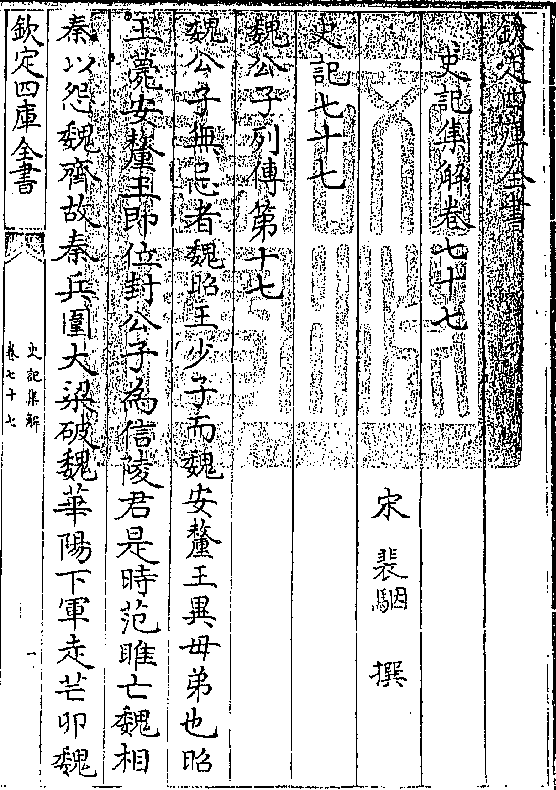 欽定四庫全書
史記集解卷七十七
宋 裴駰 撰
史記七十七
魏公子列傳第十七
魏公子無忌者魏昭王少子而魏安釐王異母弟也昭
王薨安釐王即位封公子為信陵君是時范雎亡魏相
秦以怨魏齊故秦兵圍大梁破魏華陽下軍走芒卯魏
欽定四庫全書
史記集解
卷七十七
一